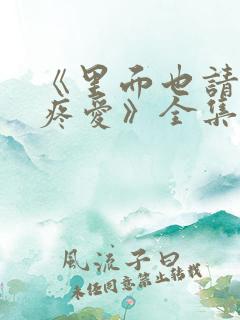 《里面也請
疼愛》全集
風流子曰
未任同意禁止转载